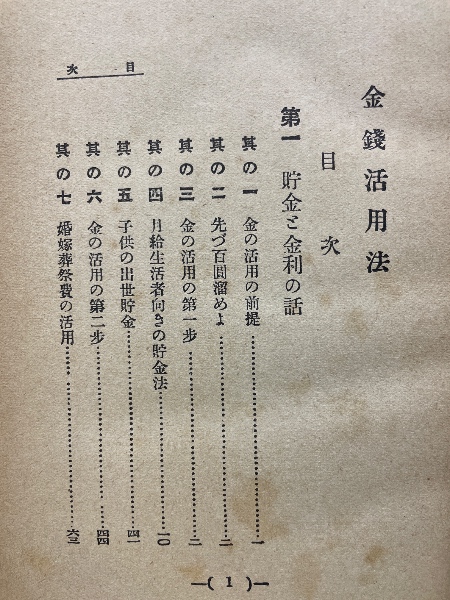 金錢活用法
目次
第一 貯金と金利の話
其の一 金の活用の前提……一
其の二 先づ百圓溜めよ……二
其の三 金の活用の第一步……二
其の四 月給生活者向きの貯金法……一〇
其の五 子供の出世貯金……四一
其の六 金の活用の第二步……四四
其の七 婚嫁葬祭費の活用……六三
目次
—( 1 )—